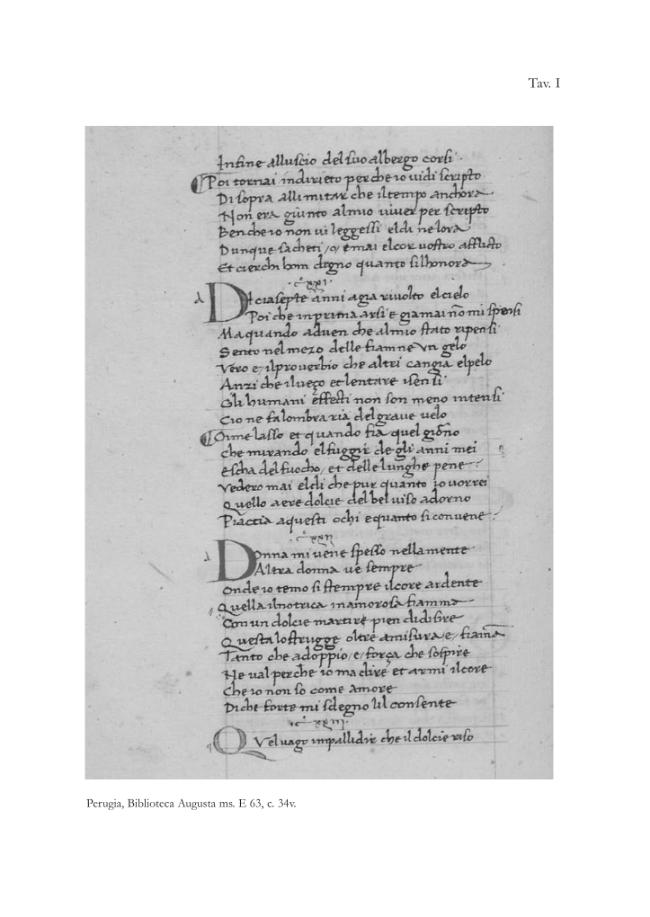 Tav. I
Infine alluscio del suo albergo corsi
Poi tornai indirieto perche io vidi scripto
Di sopra allimitar che iltempo anchora
Non era giunto almio viver per scripto
Benche io non vi leggessi eldi nelora
Dunque sacheti, mai elcor vostro afflicto
Et cierchi hom degno quanto silhonora
Diciasepte anni agia rivolto elcielo
Poi che inprima arsi e giamai nō mi spensi
Ma quando adven che almio stato ripensi
Sento nel mezo delle fiamne vn gelo
Vero e, ilproverbio che altri cangia elpelo
Anzi che iluezo et lentare isensi
Gli humani effecti non son meno intensi
Cio ne falombra ria del grave velo
Oime lasso et quando fia quel giorno
che mirando elfuggir de gli anni mei
escha del fuocho, et delle lunghe pene
Vedero mai eldi che pur quanto io vorrei
Quello aere dolcie del bel viso adorno
Piaccia aquesti ochi e quanto si convene
Donna mi vene spesso nella mente
Altra donna ve sempre
Onde io temo si stempre ilcore ardente
Quella ilnotrica inamorosa fiamma
Con un dolcie martire pien didisire
Questa lostrugge oltre amisura e, fiama
Tanto che adoppio, e, força che sospire
Ne val perche io ma dire et armi ilcore
Che io non so come amore
Di che forte mi sdegno lil consente
Quel vago impallidir che il dolcie riso
Perugia, Biblioteca Augusta ms. E 63, c. 34v.